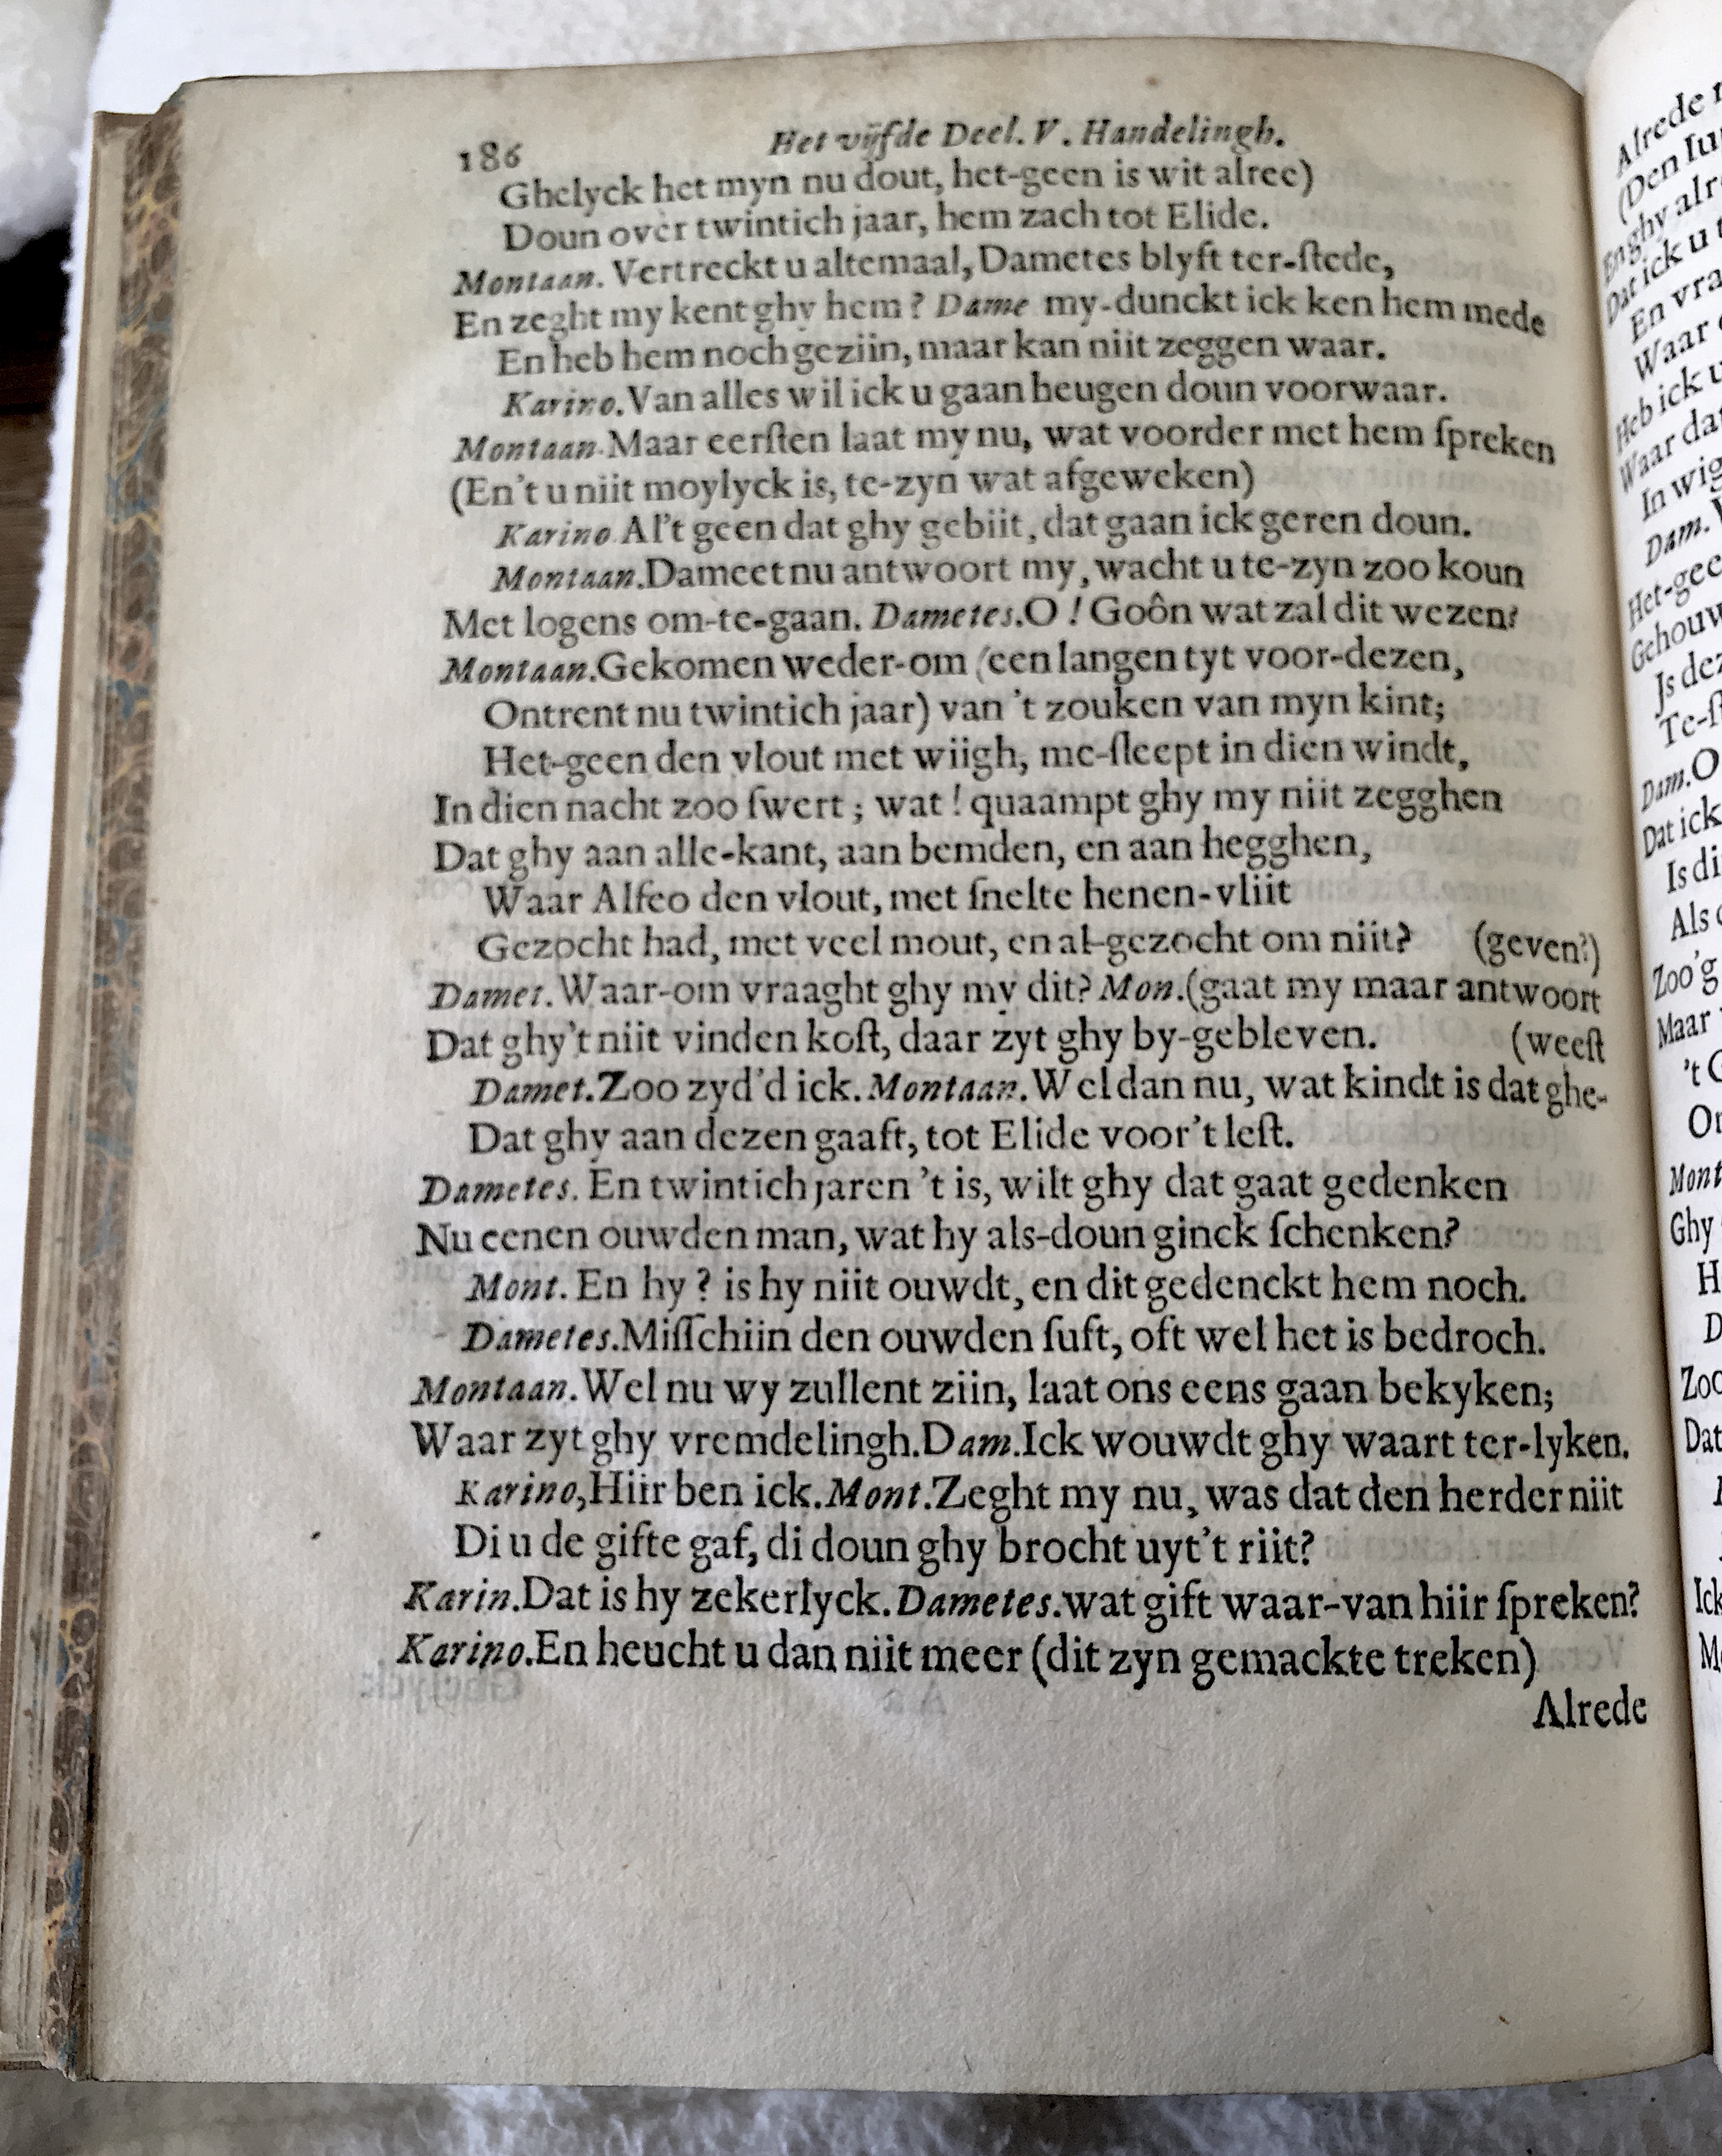 186 Het vijfde Deel. V. Handelingh.
Ghelyck het myn nu dout, het-geen is wit alree)
Doun over twintich jaar, hem zach tot Elide.
Montaan. Vertreckt u altemaal, Dametes blyft ter-ſtede,
En zeght my kent ghy hem? Dame my-dunckt ick ken hem mede
En heb hem noch geziin, maar kan niit zeggen waar.
Karino. Van alles wil ick u gaan heugen doun voorwaar.
Montaan. Maar eerſten laat my nu, wat voorder met hem ſpreken
(En't u niit moylyck is, te-zyn wat afgeweken)
Karino Al't geen dat ghy gebiit, dat gaan ick geren doun.
Montaan. Dameet nu antwoort my, wacht u te-zyn zoo koun
Met logens om-te-gaan. Dametes. O! Goôn wat zal dit wezen?
Montaan. Gekomen weder-om (een langen tyt voor-dezen,
Ontrent nu twintich jaar) van 't zouken van myn kint;
Het-geen den vlout met wiigh, me-ſleept in dien windt,
In dien nacht zoo ſwert; wat! quaampt ghy my niit zegghen
Dat ghy aan alle-kant, aan bemden, en aan hegghen,
Waar Alfeo den vlout, met ſnelte henen-vliit
Gezocht had, met veel mout, en al-gezocht om niit? (geven?)
Damet. Waar-om vraaght ghy my dit? Mon. (gaat my maar antwoort
Dat ghy't niit vinden koſt, daar zyt ghy by-gebleven. (weeſt
Damet. Zoo zyd'd ick. Montaan. Wel dan nu, wat kindt is dat ghe-
Dat ghy aan dezen gaaft, tot Elide voor't leſt.
Dametes. En twintich jaren 't is, wilt ghy dat gaat gedenken
Nu eenen ouwden man, wat hy als-doun ginck ſchenken?
Mont. En hy? is hy niit ouwdt, en dit gedenckt hem noch.
Dametes. Miſſchiin den ouwden ſuft, oft wel het is bedroch.
Montaan. Wel nu wy zullent ziin, laat ons eens gaan bekyken;
Waar zyt ghy vremdelingh. Dam. Ick wouwdt ghy waart ter-lyken.
Karino, Hiir ben ick. Mont. Zeght my nu, was dat den herder niit
Di u de gifte gaf, di doun ghy brocht uyt't riit?
Karin. Dat is hy zekerlyck. Dametes. wat gift waar-van hiir ſpreken?
Karino. En heucht u dan niit meer (dit zyn gemackte treken)
Alrede
Alrede
(Den
En ghy alr
Dat ick u
En vra
Waar
Heb ick u
Waar dat
In wig
Dam.
Het-gee
Gehouw
Is dez
Te-ſ
Dam. O
Dat ick
Is di
Als
Zoo'g
Maar
't
Mont
Ghy
H
D
Zoo
Dat
Ick